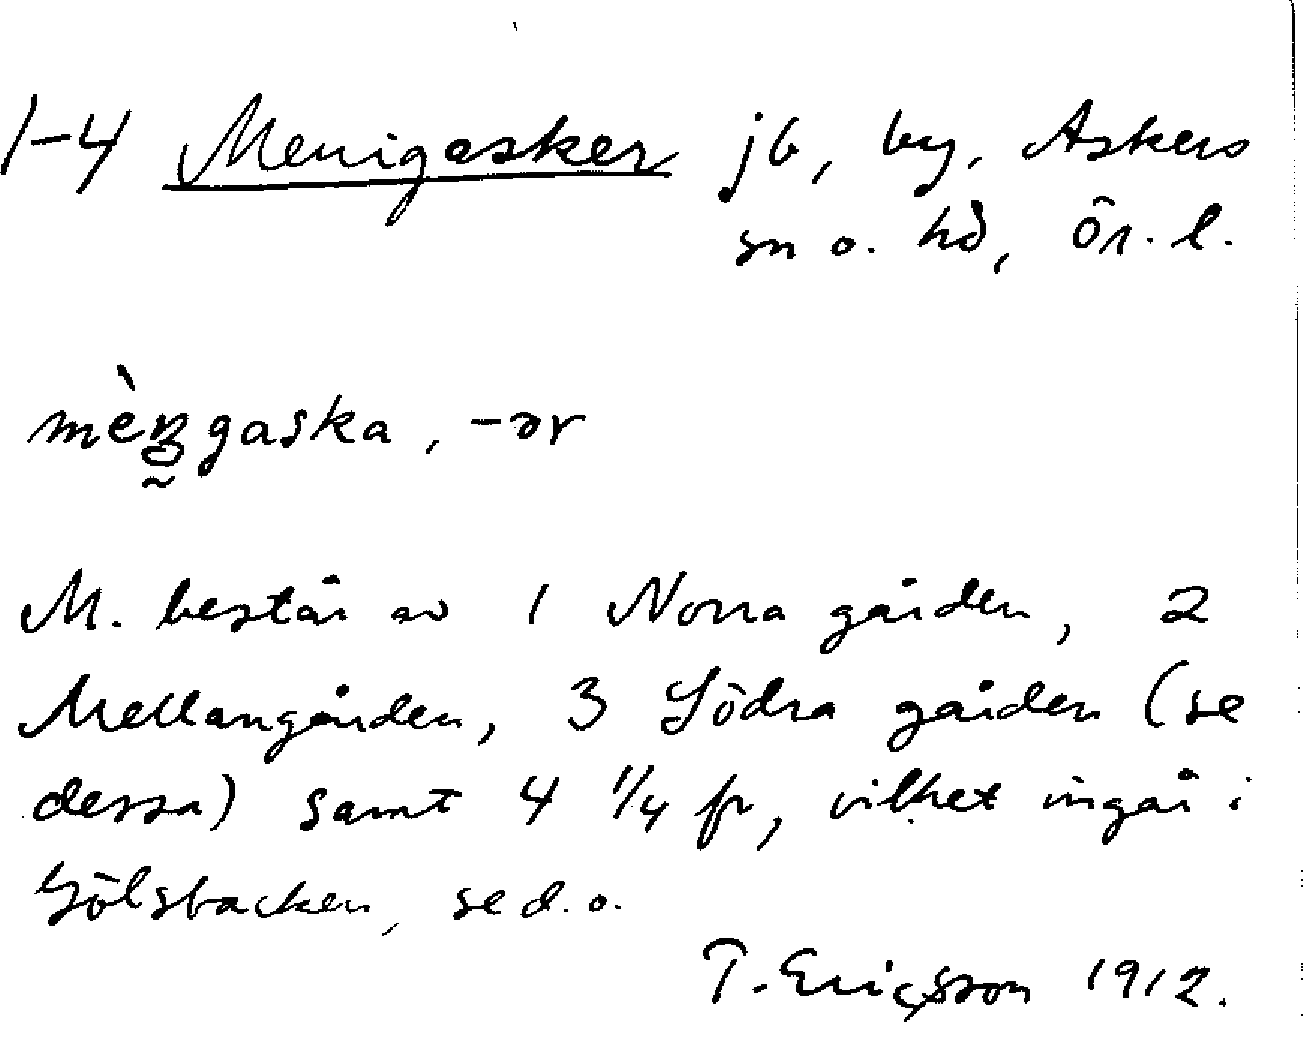 1-4 Menigasker jb, by, Askers
sn o. hd, Ör. l.
mèŋgaska, -ər
M. består av 1 Norra gården, 2
Mellangården, 3 Södra gården (se
dessa) samt 4 1/4 fr, vilket ingår i
Gölsbacken, se d. o.
T. Ericsson 1912.